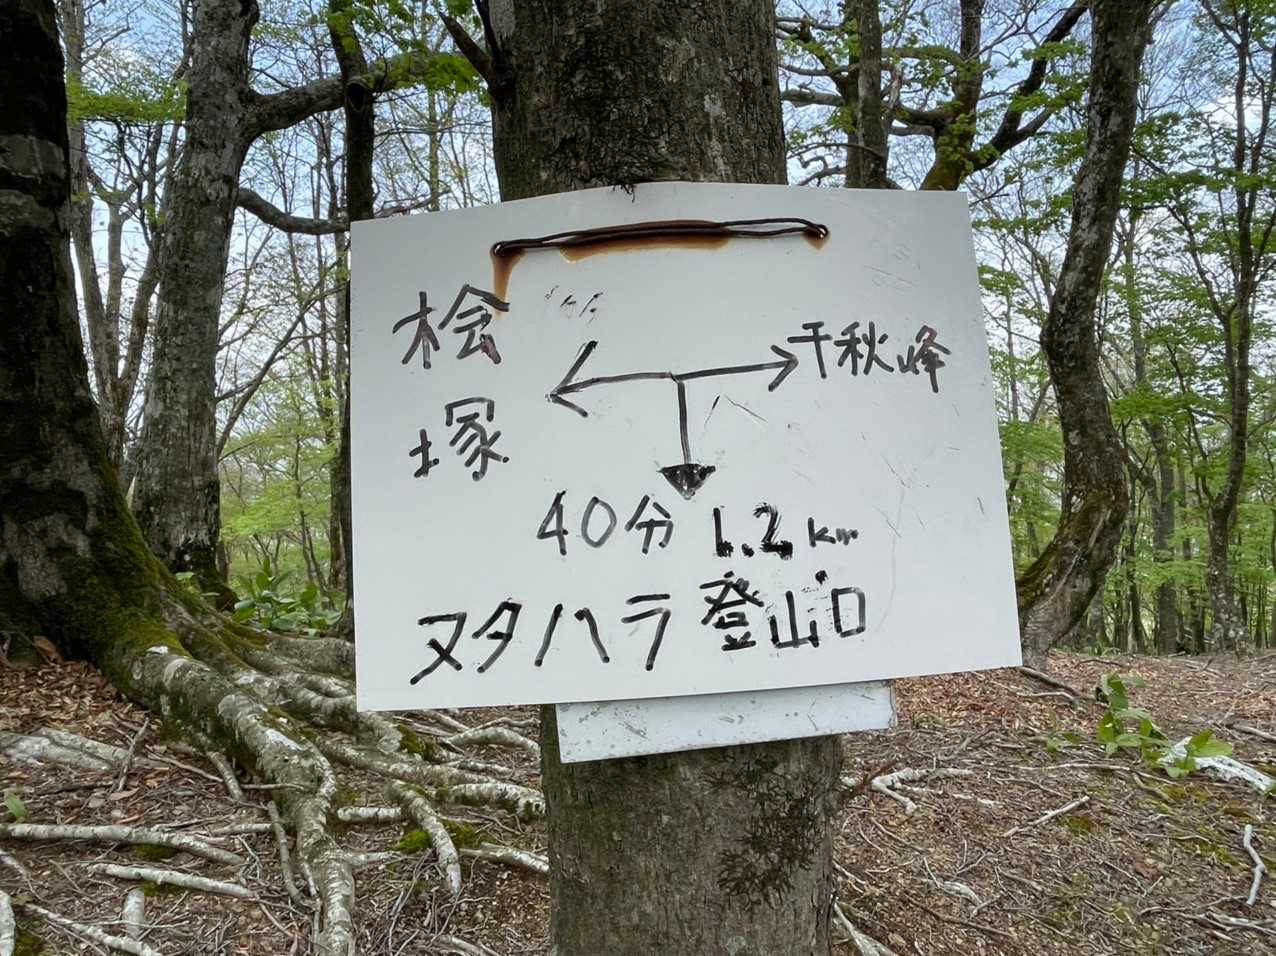 桧塚
千秋峰
40分 1.2km
ヌタハラ登山口